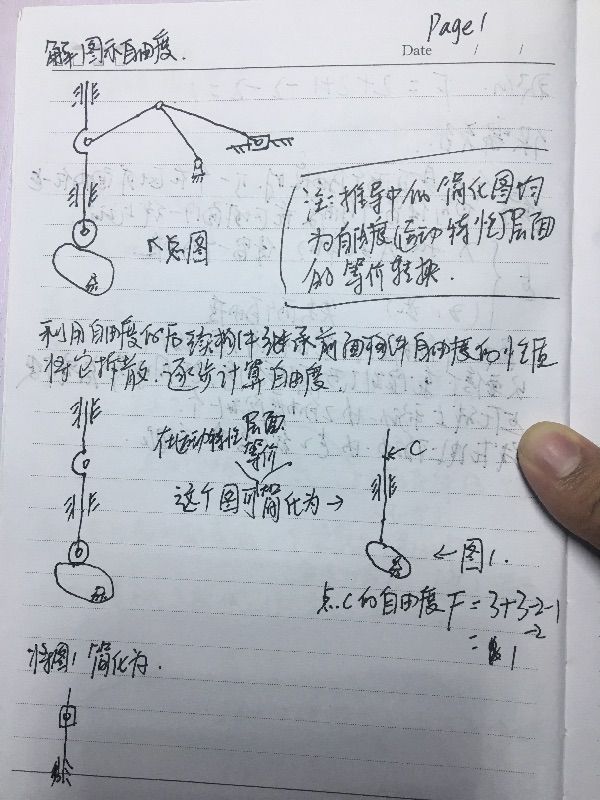 Page 1
Date / /
解图示自由度.
↖总图
注:推导中的简化图均
为自由度(运动特性)层面
的等价转换.
利用自由度的后续构件继承前面构件自由度的性质
将它拆散.逐步计算自由度
在运动特性层面
等价
这个图可简化为→
← C
←图1.
点C的自由度F=3+3-2-1
-2
=1
将图1简化为.